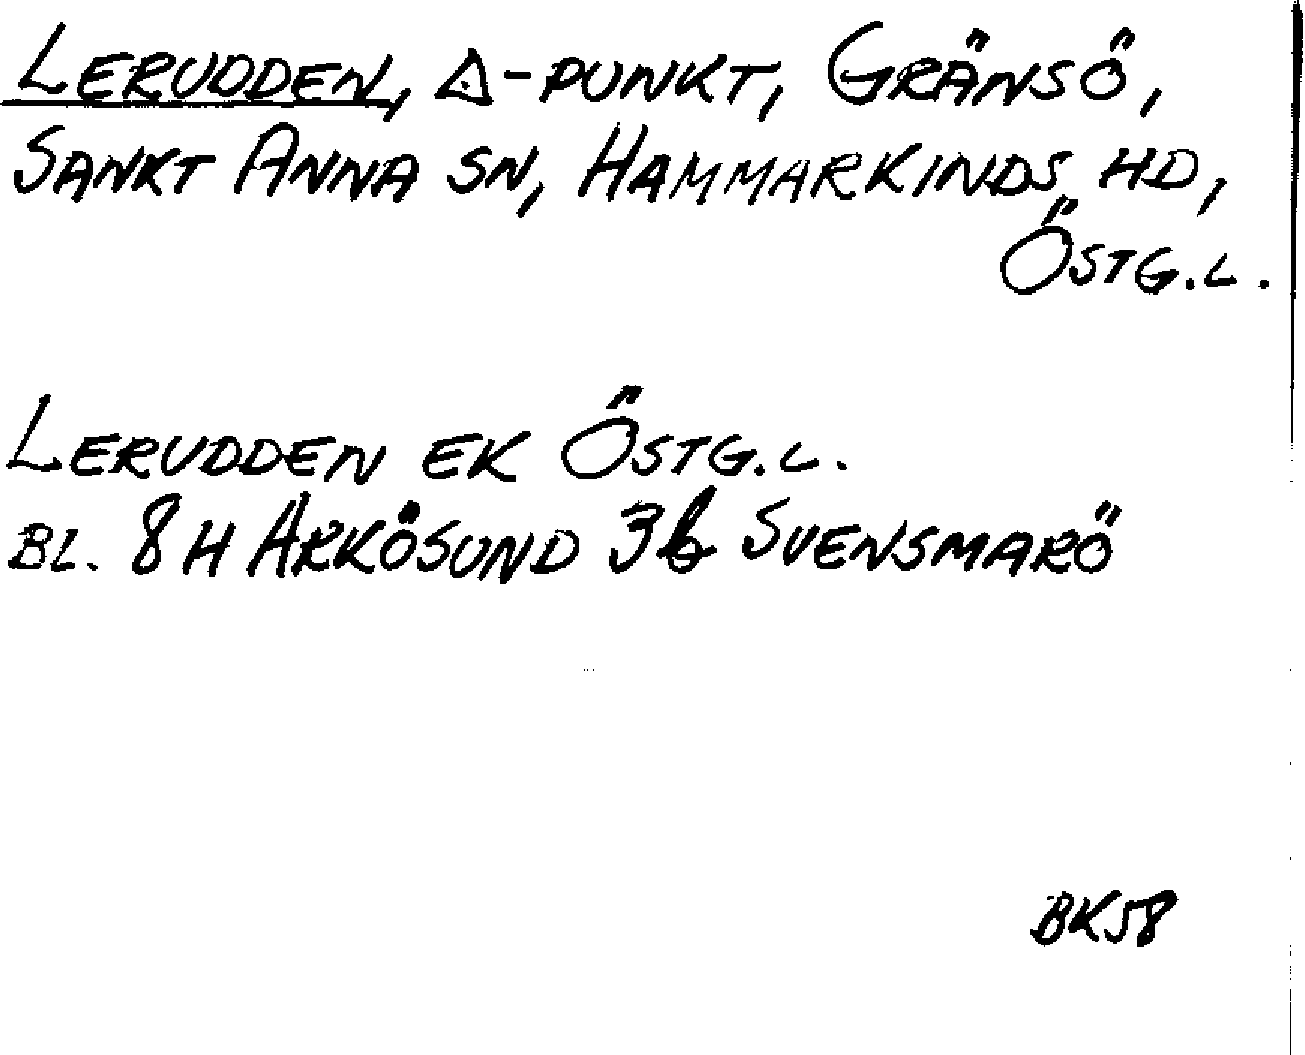 LERUDDEN, △-PUNKT, GRÄNSÖ,
SANKT ANNA SN, HAMMARKINDS HD,
ÖSTG.L.
LERUDDEN EK ÖSTG.L.
BL. 8H ARKÖSUND 3b SVENSMARÖ
BK58